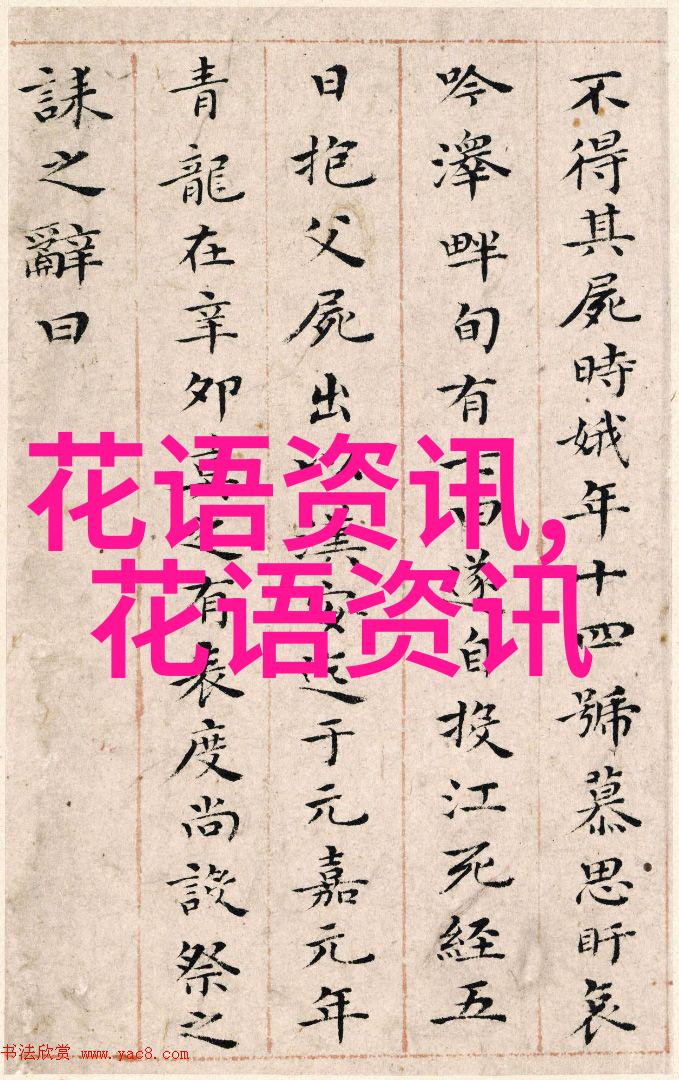 不得其屍時娥年十四號慕思盱哀
吟澤畔旬有遂自投江死經五
日抱父屍出以漢安迄于元嘉元年
青龍在辛卯莫之有表度尚設祭之
誄之辭曰
花语资讯,
花语资讯
书法欣赏 www.yac8.com